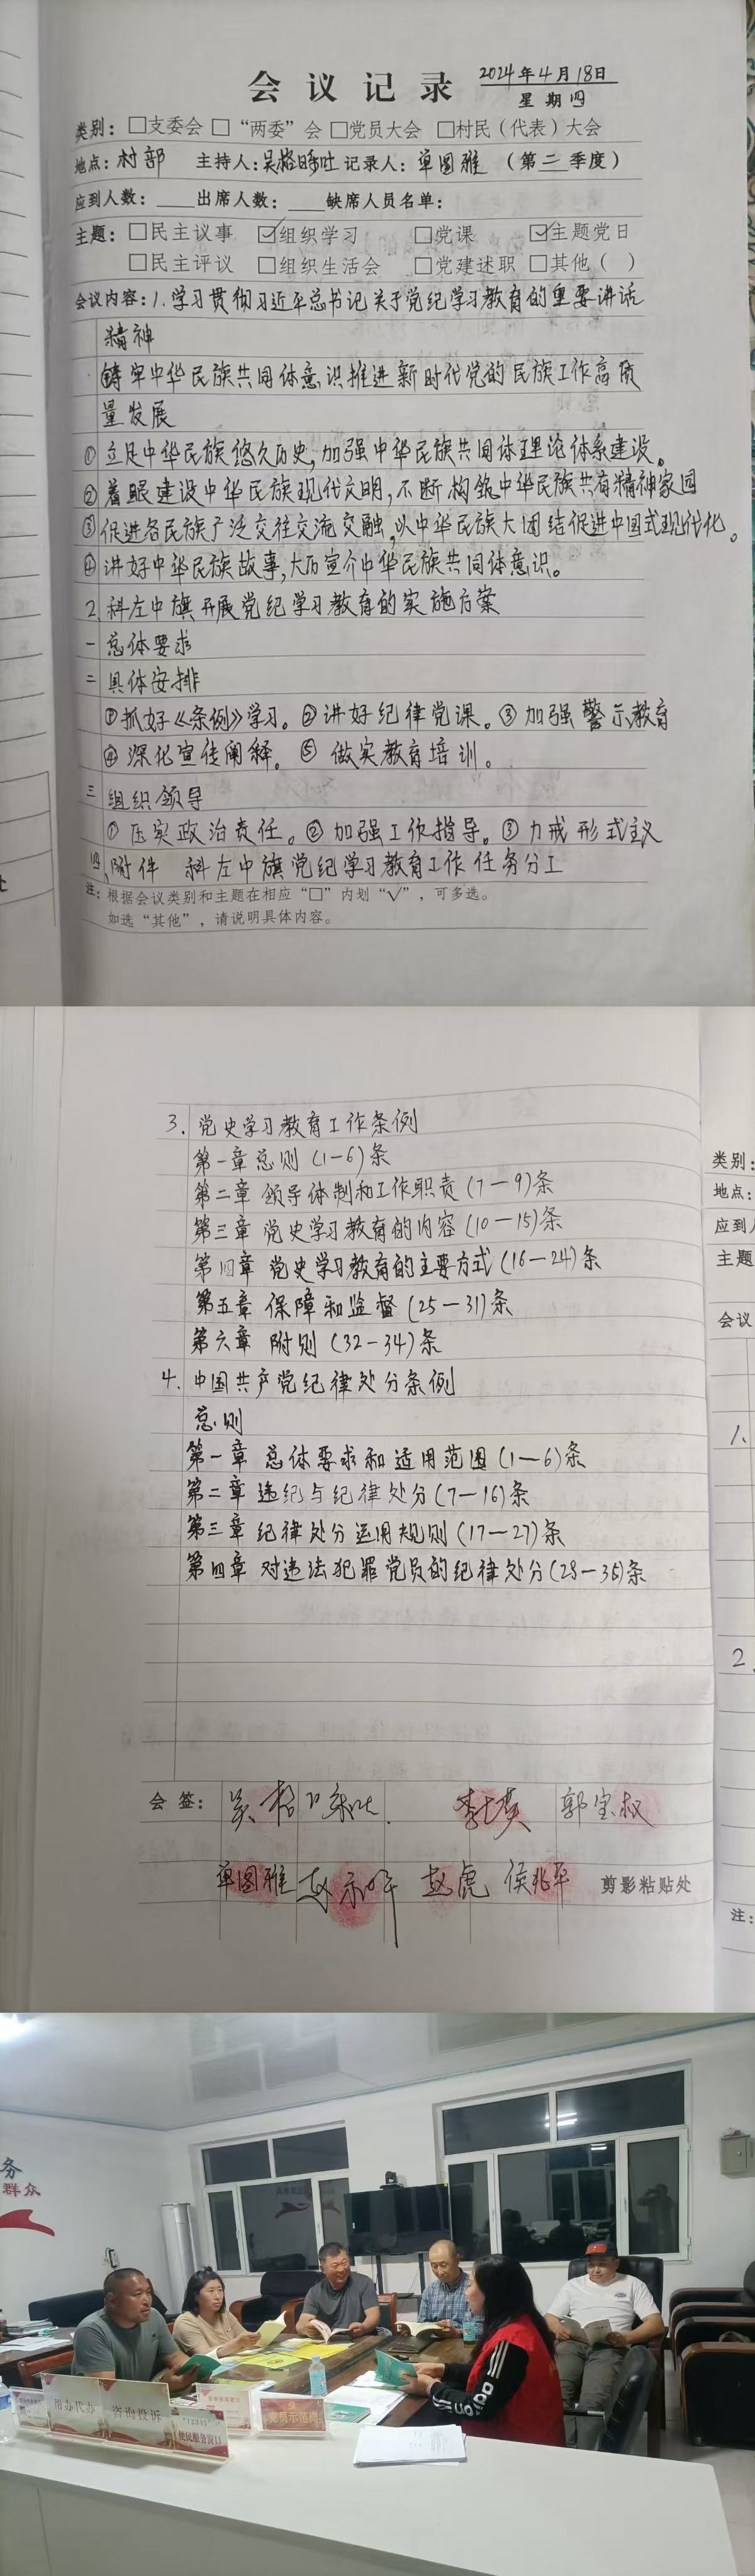 会议记录 2024年4月18日
星期四
类别：□支委会 □“两委”会 □党员大会 □村民（代表）大会
地点：村部 主持人：吴格日乐吐 记录人：单图雅 （第二季度）
应到人数：____出席人数：____缺席人员名单：
主题：□民主议事 ☑组织学习 □党课 ☑主题党日
□民主评议 □组织生活会 □党建述职 □其他（ ）
会议内容：1.学习贯彻习近平总书记关于党纪学习教育的重要讲话
精神
铸牢中华民族共同体意识推进新时代党的民族工作高质
量发展
①立足中华民族悠久历史，加强中华民族共同体理论体系建设。
②着眼建设中华民族现代文明，不断构筑中华民族共有精神家园
③促进各民族广泛交往交流交融，以中华民族大团结促进中国式现代化。
④讲好中华民族故事，大力宣介中华民族共同体意识。
2.科左中旗开展党纪学习教育的实施方案
一 总体要求
二 具体安排
①抓好《条例》学习。②讲好纪律党课。③加强警示教育
④深化宣传阐释。⑤做实教育培训。
三 组织领导
①压实政治责任。②加强工作指导。③力戒形式主义
四、附件 科左中旗党纪学习教育工作任务分工
注：根据会议类别和主题在相应“□”内划“√”，可多选。
如选“其他”，请说明具体内容。
3.党史学习教育工作条例
第一章总则（1-6)条
第二章 领导体制和工作职责(7-9)条
第三章 党史学习教育的内容(10-15)条
第四章 党史学习教育的主要方式(16-24)条
第五章 保障和监督(25-31)条
第六章 附则(32-34)条
4.中国共产党纪律处分条例
总则
第一章 总体要求和适用范围(1-6)条
第二章 违纪与纪律处分(7-16)条
第三章纪律处分运用规则(17-27)条
第四章 对违法犯罪党员的纪律处分(28-36)条
类别：
地点：
应到人
主题
会议
1、
2、
注：
会签：
郭宝叔
单图雅 赵 赵虎 侯兆平 剪影粘贴处
务
群众
帮办代办 咨询投诉
便民服务窗口
党员示范岗
adidas